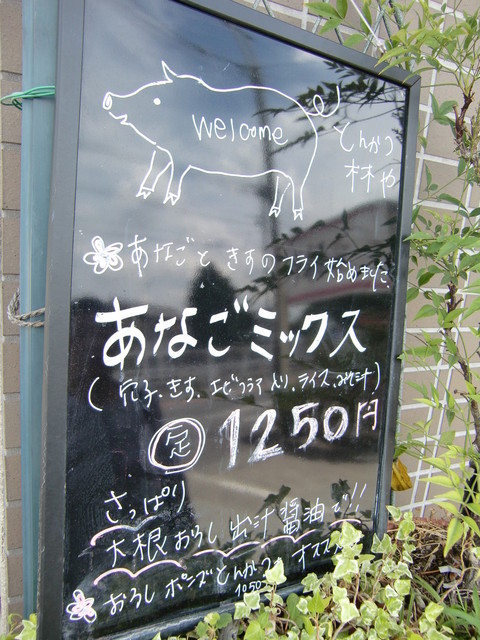 Welcome
とんかつ
林や
あなごと きすのフライ始めました
あなごミックス
(穴子、きす、エビフライ入り、ライス、みそ汁)
定 1250円
さっぱり
大根おろし 出汁醤油で!!
おろし ポンズとんかつ オススメ
1050